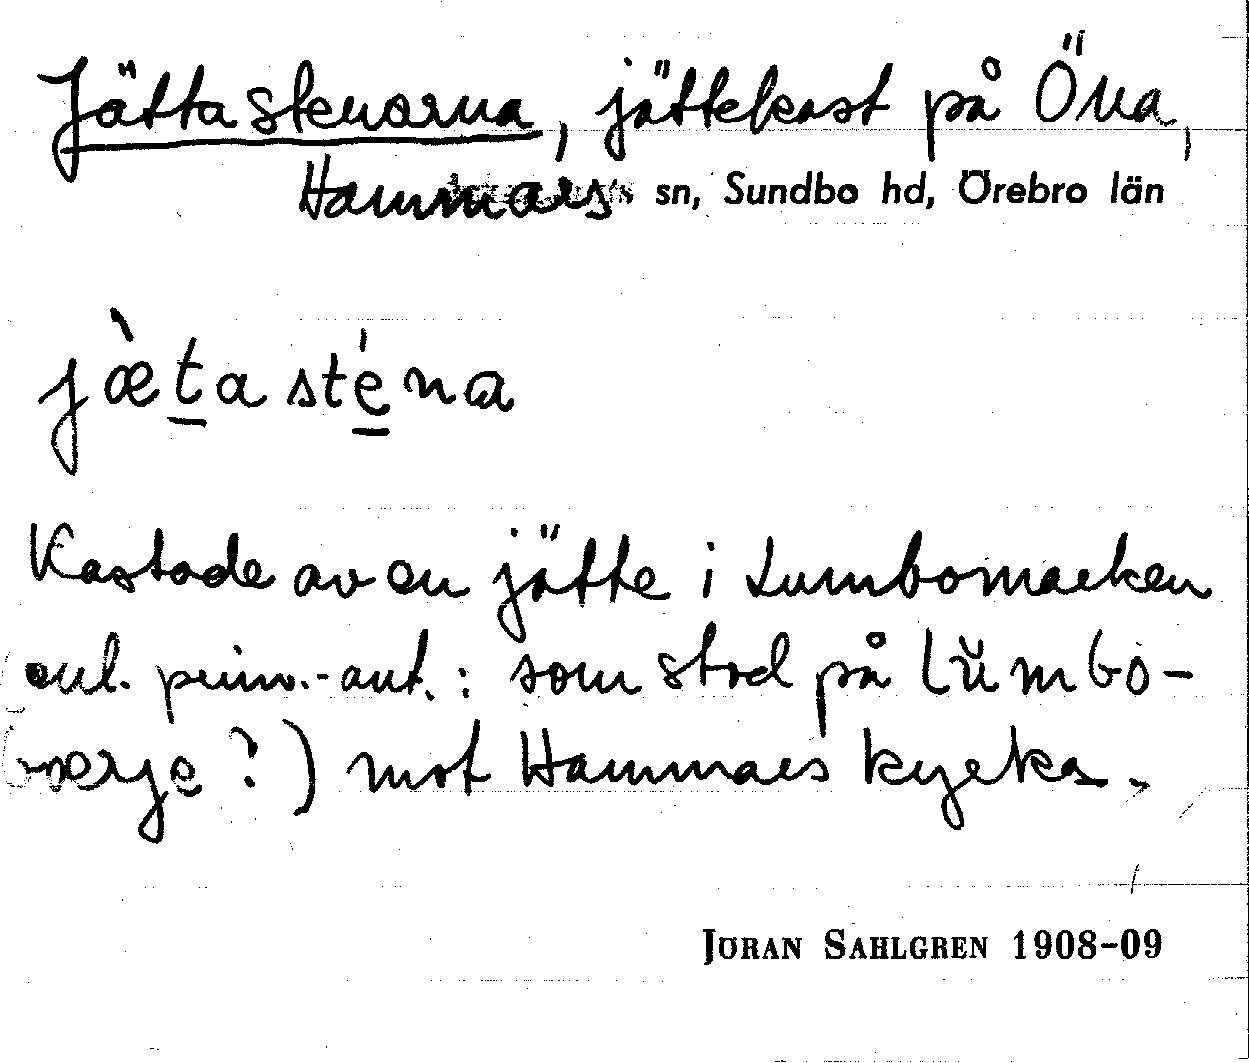 Jättastenarna, jättekast på Öna,
Hammars sn, Sundbo hd, Örebro län
jæ̀ta sténa
Kastade av en jätte i Lumbomarken
enl. prim.-ant.: som stod på Lŭmbo-
værje?) mot Hammars kyrka.
JÖRAN SAHLGREN 1908-09